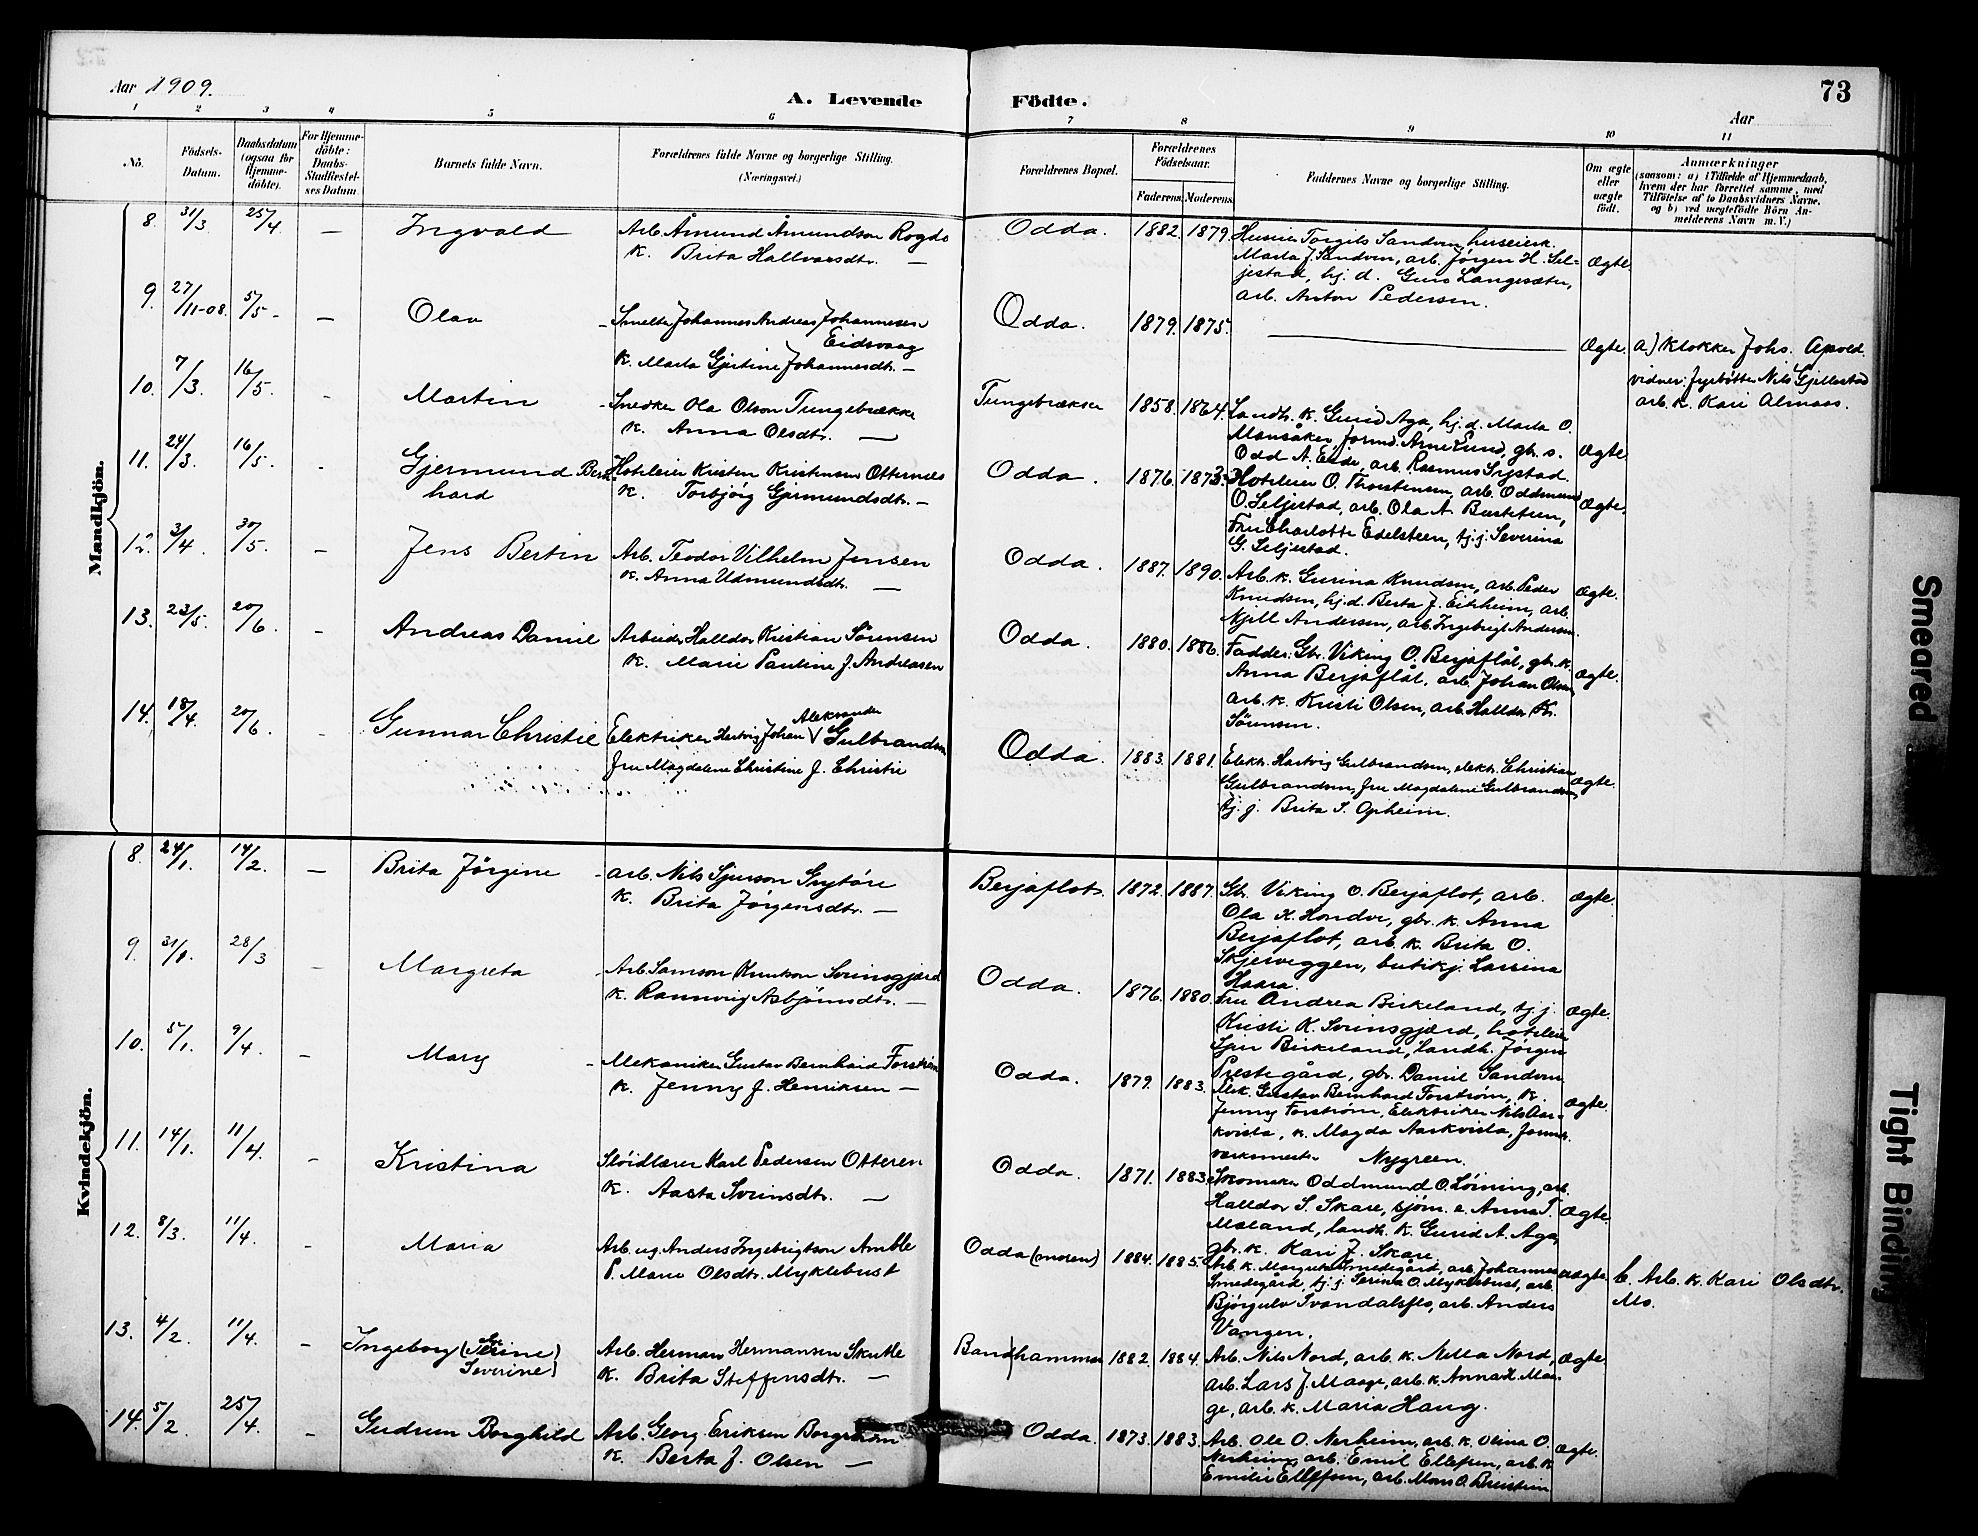 Aar 1909.
A. Levende Födte.
73
Aar
1 2 3 4 5 6 7 8 9 10 11
No. Födsels-Datum. Daabsdatum (ogsaa for Hjemme-döbte). For Hjemme-döbte: Daabs-Stadfæstel-ses Datum. Barnets fulde Navn. Forældrenes fulde Navne og borgerlige Stilling. (Næringsvei.) Forældrenes Bopæl. Forældrenes Födselsaar. Faderens. Moderens. Faddernes Navne og borgerlige Stilling. Om ægte eller uægte født. Anmærkninger (saasom: a) i Tilfælde af Hjemmedaab, hvem der har forrettet samme, med Tilföielse af to Daabsvidners Navne, og b) ved uægtefödte Börn An-melderens Navn m. V.)
Mandkjön.
8. 31/3 25/4 — Ingvald Arb. Åmund Åmundson Rogde Odda. 1882. 1879. Torgils Sandven,
K. Brita Hallvarsdtr. — Marta J. Sandven, arb. Jørgen H. Sel-
jestad, hj. d. Guro Langesæter, Ægte.
arb. Anton Pedersen.
9. 27/11-08. 5/5 — Olav Smelte Johannes Andreas Johannesen Odda. 1879. 1875. —
Eidsvaag
K. Marta Gjertine Johannesdtr. — Ægte a) Klokker Johs. Apold.
vidner: Nils Gjellestad
arb. k. Kari Almaas.
10. 7/3 16/5 - Martin Snedker Ola Olson Tungebrække Tungebrække 1858. 1864. Landh. k. Gurid Aga, hj. d. Marta O.
K. Anna Olsdtr. — Mansåker, formd. Arne Lund, gb. s.
Odd A. Eide, arb. Rasmus Ægte
11. 24/3 16/5 - Gjermund Bern- Hoteleier Kristen Kristensen Otternes Odda. 1876. 1873. Hoteleier O. Thorstensen, arb. Oddmund
hard K. Torbjørg Gjermundsdtr. — O. Seljestad, arb. Ola A. Bustetun, Ægte.
Fru Charlotte Edelsteen, tj. j. Severina
G. Seljestad.
12. 3/4 30/5 — Jens Bertin Arb. Teodor Vilhelm Jensen Odda. 1887. 1890. Arb. k. Gurina Knudsen, arb. Peder
K. Anna Udmundsdtr. — Knudsen, hj. d. Berta J. Eitrheim, arb. Ægte.
Kjell Andersen, arb. Ingebrigt Andersen.
13. 23/5 20/6 - Andreas Daniel Arbeider Halldor Kristian Sørensen Odda. 1880. 1886. Fadder: Gbr. Viking O. Berjaflåt, gbr. k.
K. Marie Pauline J. Andreasen Anna Berjaflåt, arb. Johan Olsen Ægte.
arb. k. Kristi Olsen, arb. Halldor Kr.
Sørensen.
14. 18/4 20/6 - Gunnar Christie Elektriker Hartvig Johan Aleksander Gulbrandsen Odda. 1883. 1881. Elekt. Hartvig Gulbrandsen, elekt. Christian
fru Magdalene Christine J. Christie Gulbrandsen, fru Magdalene Gulbrandsen, Ægte.
tj. j. Brita S. Opheim.
Kvindekjön.
8. 24/1 14/2 — Brita Jørgine Arb. Nils Sjurson Grytöre Berjaflot. 1872. 1887. Gbr. Viking O. Berjaflot, arb. Ægte.
K. Brita Jørgensdtr. — Ola K. Hondve, gbr. k. Anna
Berjaflot, arb. k. Brita O.
Skjerveggen, butikj. Larsina
Haara.
9. 31/1 28/3 - Margreta Arb. Samson Knutson Sveinsgjærd Odda. 1876. 1880. Fru Andrea Birkeland, tj. j. Ægte.
K. Rannveig Asbjörnsdtr. — Kristi K. Sveinsgjærd, hoteleier
Birkeland, landh. Jørgen
Prestegård, gbr. Daniel Sandven
10. 5/1 9/4 - Mary Mekaniker Gustav Bernhard Forström Odda. 1879. 1883. Mek. Gustav Bernhard Forstrøm, k.
K. Jenny J. Henriksen — Jenny Forstrøm, Elektriker Nils Aar- Ægte.
kvisla, k. Magda Aarkvisla, form.
Nygreen.
11. 14/1 11/4 - Kristina Slöidlærer Karl Pedersen Otteren Odda. 1871. 1883. Skomaker Oddmund O. Løining, arb.
K. Aasta Sveinsdtr. — Halldor S. Skare, sjöm. e. Anna T. Ægte.
Mæland, landh. k. Gurid A. Aga,
gbr. k. Kari J. Skare.
12. 8/3 11/4 - Maria Arb. ug. Anders Ingebrigtson Amble Odda (moren) 1884. 1885. Arb. k. Margreta Smedegård, arb. Johannes uægte b. Arb. k. Kari Olsdtr.
P. Marie Olsdtr. Myklebust Smedegård, tj. j. Serina O. Myklebust, arb. Mo.
Bjørgulv Svandalsflo, arb. Anders
Vangen.
13. 4/2 11/4 - Ingeborg (Serine) Arb. Herman Hermansen Skutle Bandhammer 1882 1884. Arb. Nils Nord, arb. k. Nella Nord, Ægte.
Severine) K. Brita Steffensdtr. — arb. Lars J. Maage, arb. k. Anna L. Maa-
ge, arb. k. Maria Haug.
14. 5/2 25/4 - Gudrun Borghild Arb. Georg Eriksen Borgström Odda. 1873. 1883. Arb. Ole O. Nerheim, arb. k. Olina O. Ægte.
K. Berta J. Olsen — Nerheim, arb. Emil Ellefsen, arb. k.
Emilie Ellefsen, arb. Mons O.
Smeared
Tight Binding